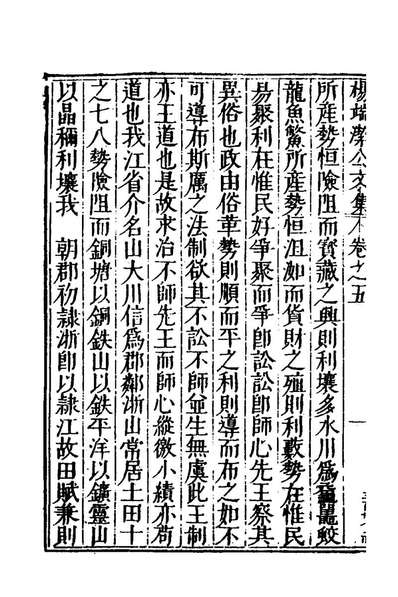 楊端潔公文集卷之五
所產勢恒險阻而寶藏之興則利壤多水川爲黿鼉蛟
龍魚鱉所產勢恒沮洳而貨財之殖則利藪勢在惟民
易聚利在惟民好爭聚而爭卽訟訟卽師心先王察其
異俗也政由俗革勢則順而平之利則導而布之如不
可導布斯厲之法制欲其不訟不師並生無虞此王制
亦王道也是故求治不師先王而師心縱徼小績亦苟
道也我江省介名山大川信爲郡鄰浙山常居土田十
之七八勢險阻而銅塘以銅鉄山以鉄平洋以鑛靈山
以晶稱利壤我 朝郡初隷浙卽以隷江故田賦兼則